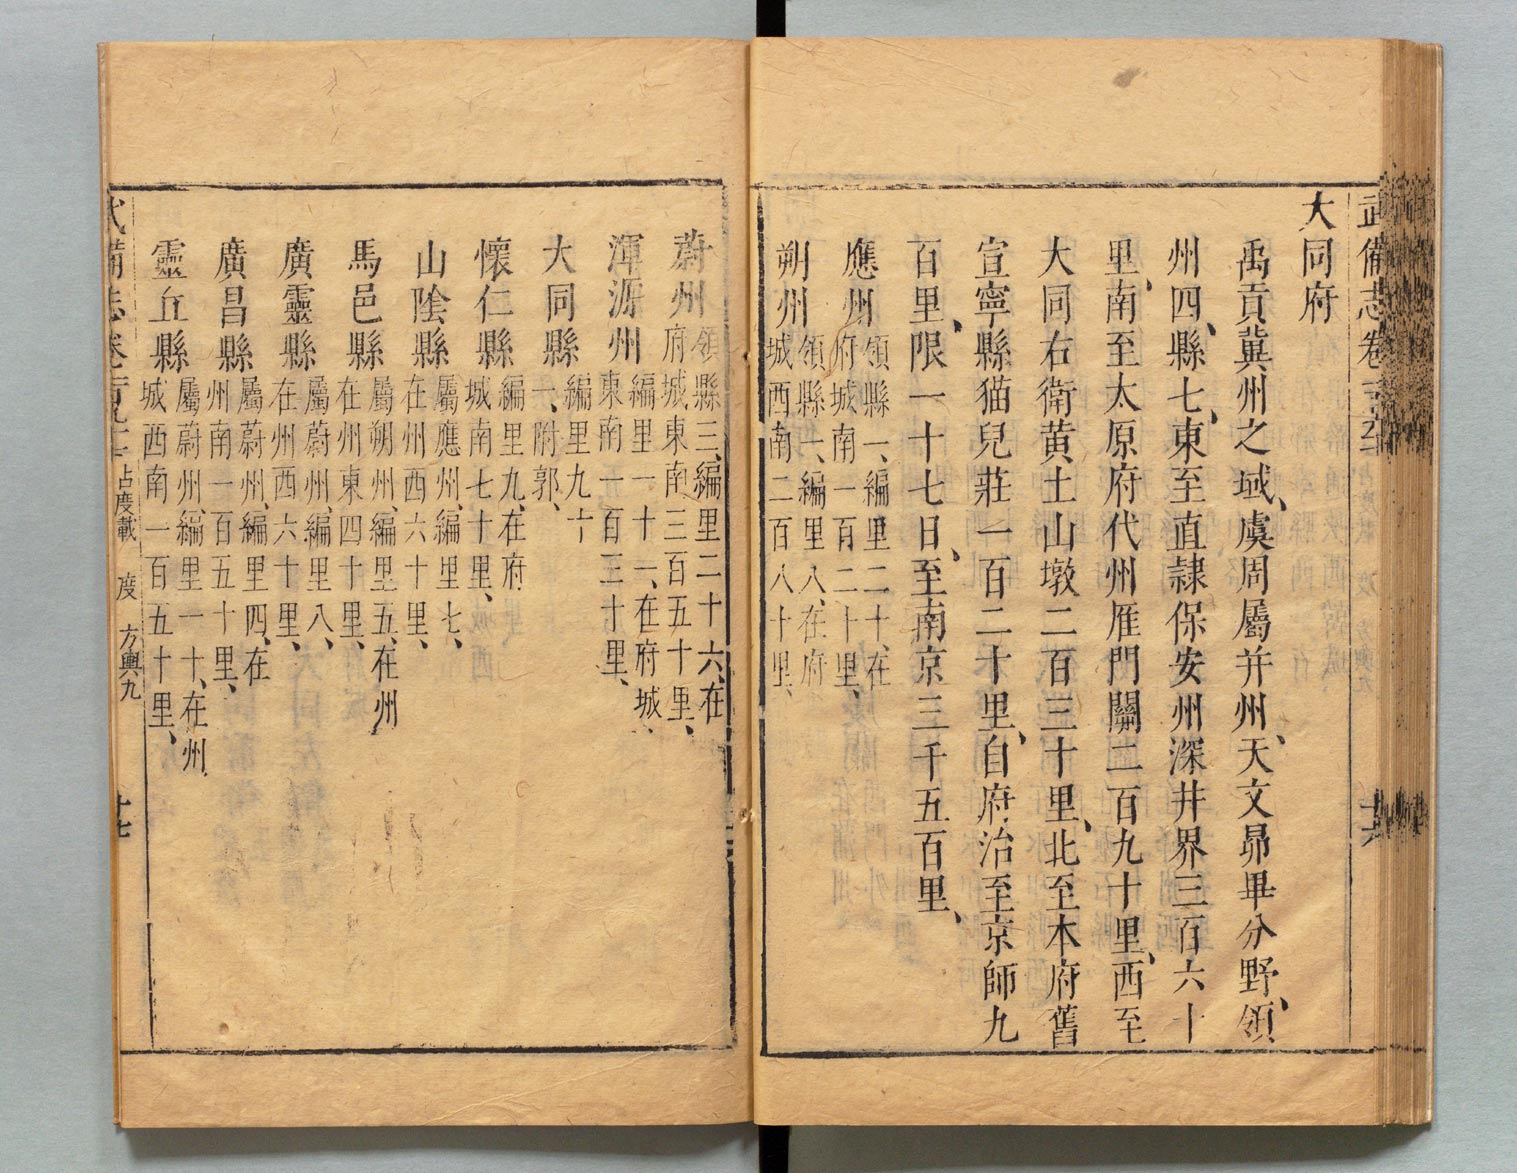 武備志卷
大同府
禹貢冀州之域、虞周屬并州、天文昴畢分野、領
州四、縣七、東至直隷保安州深井界三百六十
里、南至太原府代州雁門關二百九十里、西至
大同右衛黄土山墩二百三十里、北至本府舊
宣寧縣猫兒莊一百二十里、自府治至京師九
百里、限一十七日、至南京三千五百里、
應州領縣一、編里二十、在府城南一百二十里、
朔州領縣一、編里八、在府城西南二百八十里、
蔚州領縣三、編里二十六、在府城東南三百五十里、
渾源州編里一十一、在府城東南一百三十里、
大同縣編里九十六、附郭、
懷仁縣編里九、在府城南七十里、
山陰縣屬應州、編里七、在州西六十里、
馬邑縣屬朔州、編里五、在州東四十里、
廣靈縣屬蔚州、編里八、在州西六十里、
廣昌縣屬蔚州、編里四、在州南一百五十里、
靈丘縣屬蔚州、編里一十、在州城西南一百五十里、
武備志卷 占度載 度 方輿九 十七